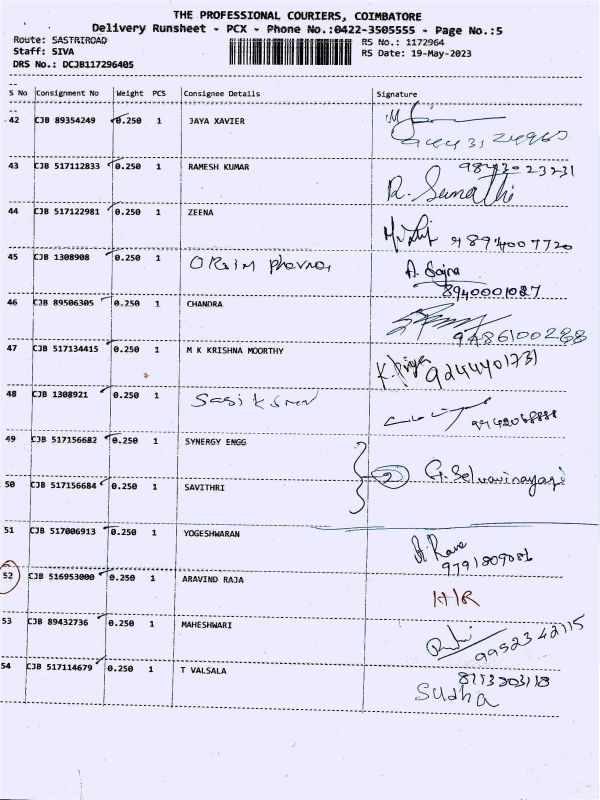 THE PROFESSIONAL COURIERS, COIMBATORE
Delivery Runsheet - PCX - Phone No.:0422-3505555 - Page No.:5
Route: SASTRIROAD RS No.: 1172964
Staff: SIVA RS Date: 19-May-2023
DRS No.: DCJB117296405
S No Consignment No Weight PCS Consignee Details Signature
42 CJB 89354249 0.250 1 JAYA XAVIER
43 CJB 517112833 0.250 1 RAMESH KUMAR 9843023231
R. Sumathi
44 CJB 517122981 0.250 1 ZEENA 9894007720
45 CJB 1308908 0.250 1 A. Sajna
8940001087
46 CJB 89506305 0.250 1 CHANDRA
9486100288
47 CJB 517134415 0.250 1 M K KRISHNA MOORTHY K. Priya 9244401731
48 CJB 1308921 0.250 1
49 CJB 517156682 0.250 1 SYNERGY ENGG
2 G. Selvavinayagi
50 CJB 517156684 0.250 1 SAVITHRI
51 CJB 517006913 0.250 1 YOGESHWARAN
9791809086
52 CJB 516953000 0.250 1 ARAVIND RAJA H/R
53 CJB 89432736 0.250 1 MAHESHWARI
9952342115
54 CJB 517114679 0.250 1 T VALSALA
Sudha